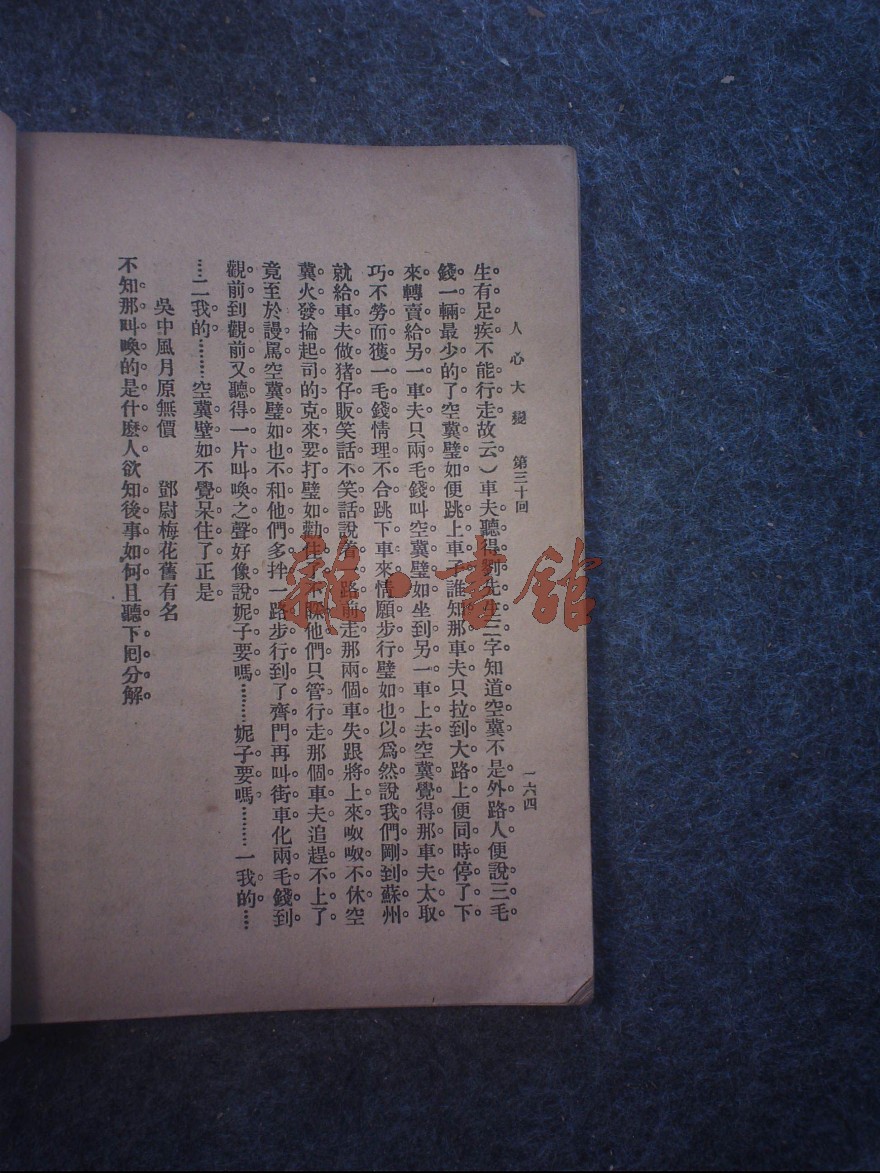 人心大變　第三十回
一六四
生有足疾不能行走故云）車夫聽得劉先生三字知道空冀不是外路人便說三毛
錢一輛最少的了空冀璧如便跳上車子誰知那車夫只拉到大路上便同時停了下
來轉賣給另一車夫只兩毛錢叫空冀璧如坐到另一車上去空冀覺得那車夫太取
巧不勞而獲一毛錢情理不合跳下車來情願步行璧如也以爲然說我們剛到蘇州
就給車夫做猪仔販笑話不笑話說着一路前走那兩個車失跟將上來呶呶不休空
冀火發掄起司的克來要打璧如勸住了不睬他們只管行走那個車夫追趕不上了
竟至於謾罵空冀璧如也不和他們多拌一路步行到了齊門再叫街車化兩毛錢到
觀前到觀前又聽得一片叫喚之聲好像說妮子要嗎………妮子要嗎………一我的……
……二我的………空冀璧如不覺呆住了正是
吳中風月原無價　鄧尉梅花舊有名
不知那叫喚的是什麽人欲知後事如何且聽下回分解
雜·書館